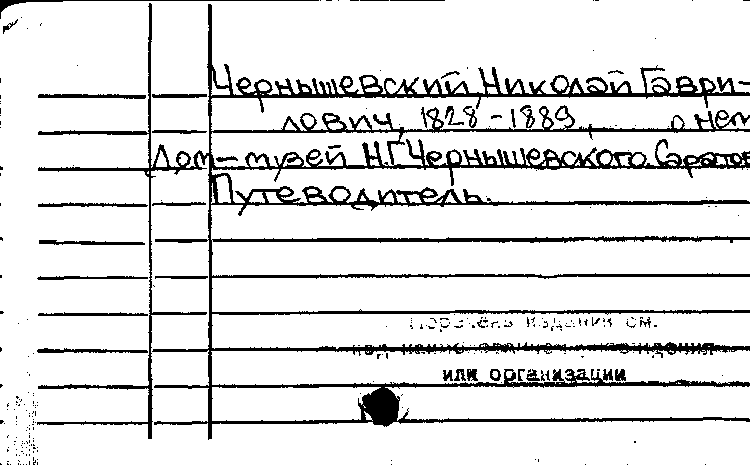 Чернышевский, Николай Гаври-
лович, 1828-1889, о нем
Дом-музей Н.Г.Чернышевского. Саратов
Путеводитель.
Перечень изданий см.
под
или организации